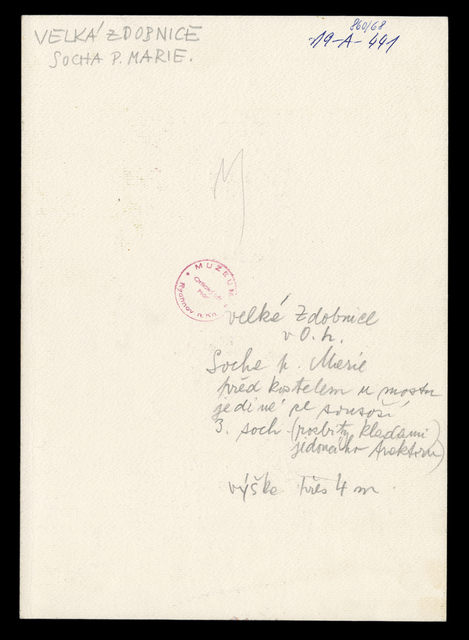 VELKÁ ZDOBNICE
SOCHA P. MARIE.
860/68
19-A-491
M
MUZEUM
Orlických hor
Rychnov n. Kn.
Velké Zdobnice
v O. h.
Socha p. Marie
před kostelem u mostu
jediné ze sousoší
3. soch (rozbity kladami
jedoucího traktoru)
výška přes 4 m